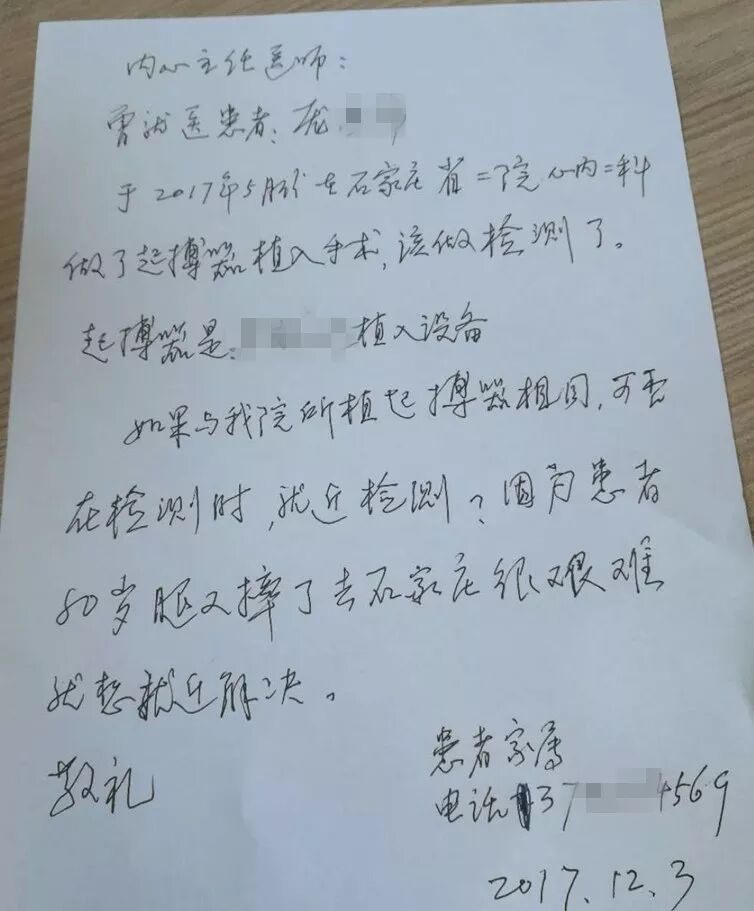 内心主任医师：
曾就医患者：庞
于2017年5月份在石家庄省二院心内二科
做了起搏器植入手术，该做检测了。
起搏器是：植入设备
如果与我院所植起搏器相同，可否
在检测时，就近检测？因为患者
80岁腿又摔了去石家庄很艰难
就想就近解决。
敬礼
患者家属
电话137 4569
2017.12.3